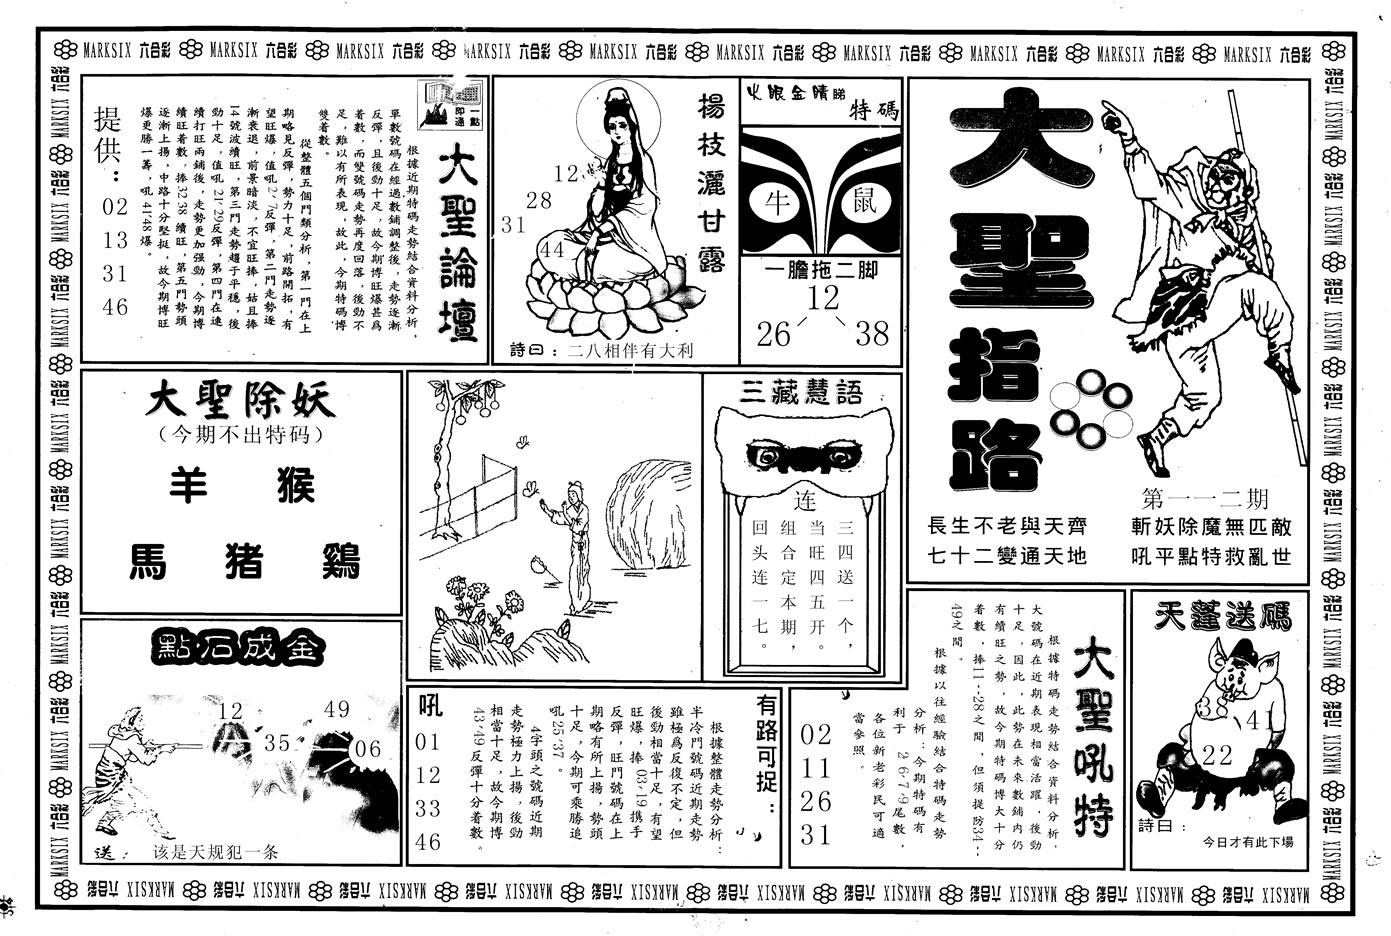 MARKSIX 六合彩 MARKSIX 六合彩 MARKSIX 六合彩 MARKSIX 六合彩 MARKSIX 六合彩 MARKSIX 六合彩 MARKSIX 六合彩 MARKSIX 六合彩 MARKSIX 六合彩 MARKSIX 六合彩
大聖指路
第一一二期
長生不老與天齊
七十二變通天地
斬妖除魔無匹敵
吼平點特救亂世
火眼金睛睇
特碼
牛
鼠
一膽拖二脚
12
26
38
楊枝灑甘露
12
28
31
44
詩曰：二八相伴有大利
一點即通
大聖論壇
根據近期特碼走勢結合資料分析，
單數號碼在經過數鋪調整後，走勢逐漸
反彈，且後勁十足，故今期博旺爆甚爲
着數，而雙號碼走勢再度回落，後勁不
足，難以有所表現，故此，今期特碼博
雙着數。
從整體五個門類分析，第一門在上
期略見反彈，勢力十足，前路開拓，有
望旺爆，值吼2、7反彈，第二門走勢逐
漸衰退，前景暗淡，不宜旺捧，姑且捧
14號波續旺，第三門走勢趨于平穩，後
勁十足，值吼21、29反彈，第四門在連
續打旺兩鋪後，走勢更加强勁，今期博
續旺着數，捧32、38續旺，第五門勢頭
逐漸上揚，中路十分堅挺，故今期博旺
爆更勝一籌，吼41、48爆。
提供：
02
13
31
46
大聖除妖
（今期不出特码）
羊 猴
馬 猪 鷄
點石成金
12
49
35
06
送： 该是天规犯一条
三藏慧語
连
三四送一个，
当旺四五开。
组合定本期，
回头连一七。
有路可捉：
根據整體走勢分析：
半冷門號碼近期走勢
雖極爲反復不定，但
後勁相當十足，有望
旺爆，捧03、19携手
反彈，旺門號碼在上
期略有所上揚，勢頭
十足，今期可乘勝追
吼25、37。
4字頭之號碼近期
走勢極力上揚，後勁
相當十足，故今期博
43、49反彈十分着數。
吼
01
12
33
46
大聖吼特
根據特碼走勢結合資料分析，
大號碼在近期表現相當活躍，後勁
十足，因此，此勢在未來數鋪内仍
有續旺之勢，故今期特碼博大十分
着數，捧11--28之間，但須提防34--
49之間。
根據以往經驗結合特碼走勢
分析：今期特碼有
利于2、6、7、9尾數，
各位新老彩民可適
當參照。
02
11
26
31
天蓬送碼
38
41
22
詩曰：
今日才有此下場